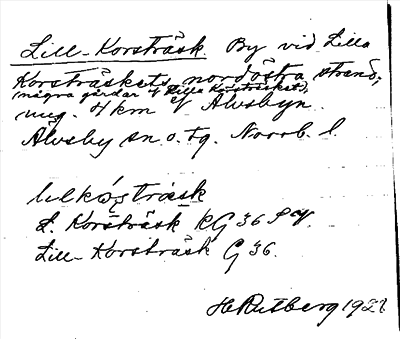 Lill-Korsträsk By vid Lilla
Korsträskets nordöstra strand,
(några gårdar v Lilla Korsträsket),
ung. 8 km v Älvsbyn.
Älvsby sn o. tg. Norrb. l.
L. Korsträsk KG 36
Lill-Korsträsk G 36.
H Rutberg 1927